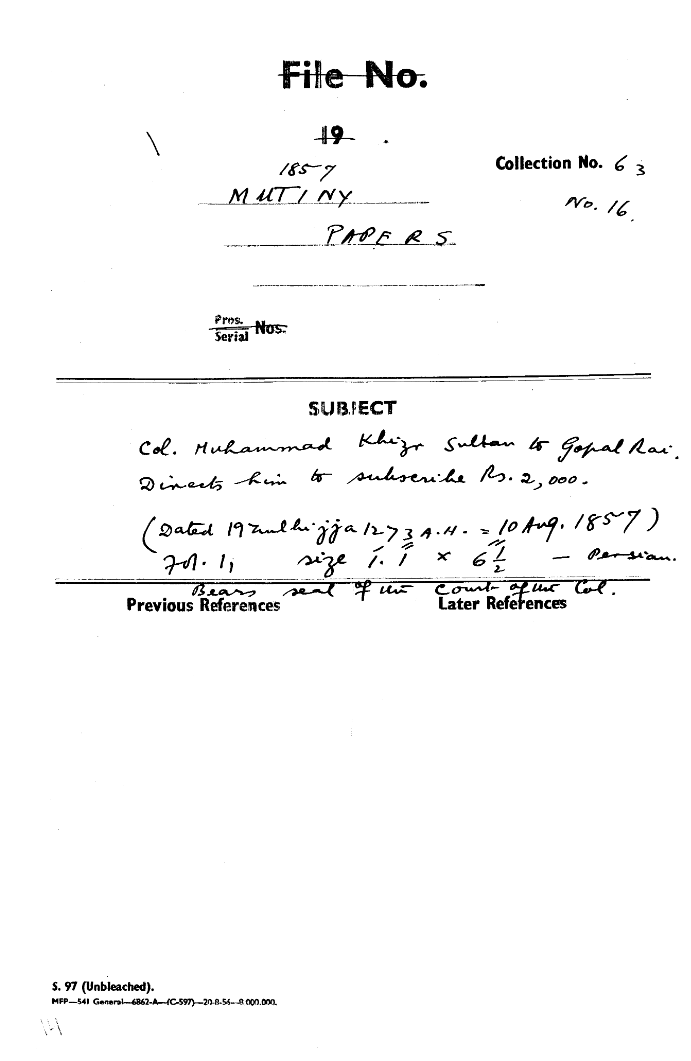 File No.
19
1857
Collection No. 63
MUTINY
No. 16.
PAPERS
Pros.
Serial Nos.
SUBJECT
Col. Muhammad Khizr Sultan to Gopal Rai.
Directs him to subscribe Rs. 2,000.
(Dated 19 Zulhijja 1273 A.H. = 10 Aug. 1857)
Fol. 1, size 1'. 1" × 6 1/2" — Persian.
Bears seal of the Court of the Col.
Previous References Later References
S. 97 (Unbleached).
MFP—541 General—6862-A—(C-597)—20-8-56—8.000.000.